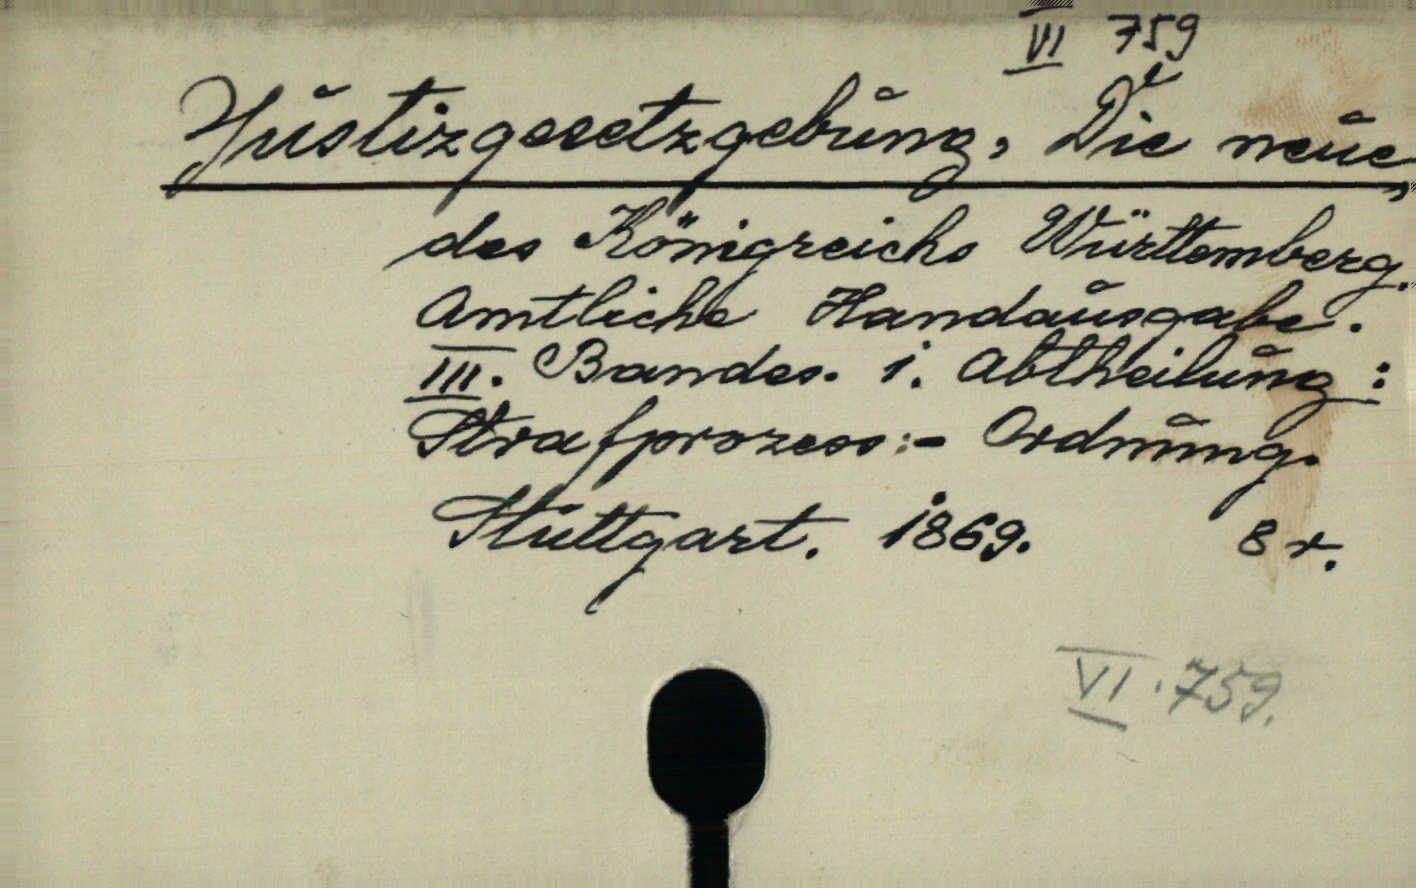 VI 759
Justizgesetzgebung, Die neue,
des Königreichs Württemberg.
Amtliche Handausgabe.
III. Bandes. 1. Abtheilung:
Strafprozess:- Ordnung.
Stuttgart. 1869. 8 r.
VI. 759.